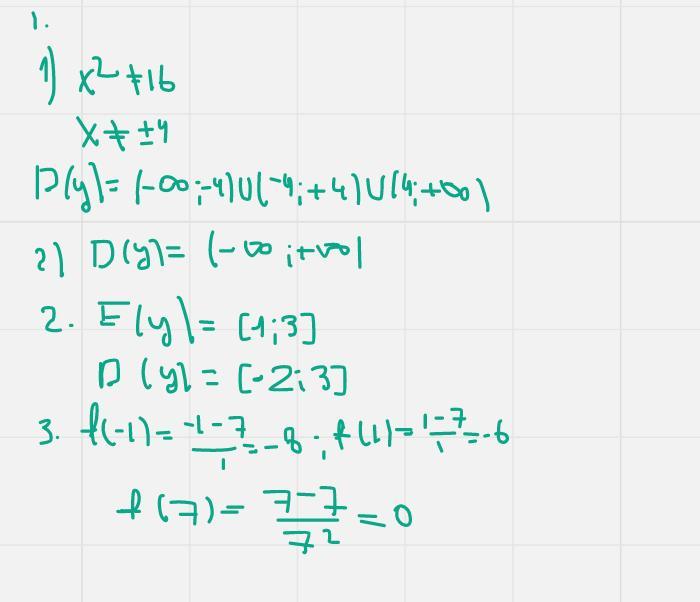 1.
1) x² ≠ 16
x ≠ ±4
D(y) = (-∞;-4)∪(-4;+4)∪(4;+∞)
2) D(y) = (-∞;+∞)
2. E(y) = [1;3]
D(y) = [-2;3]
3. f(-1) = \frac{-1-7}{1} = -8; f(1) = \frac{1-7}{1} = -6
f(7) = \frac{7-7}{7²} = 0